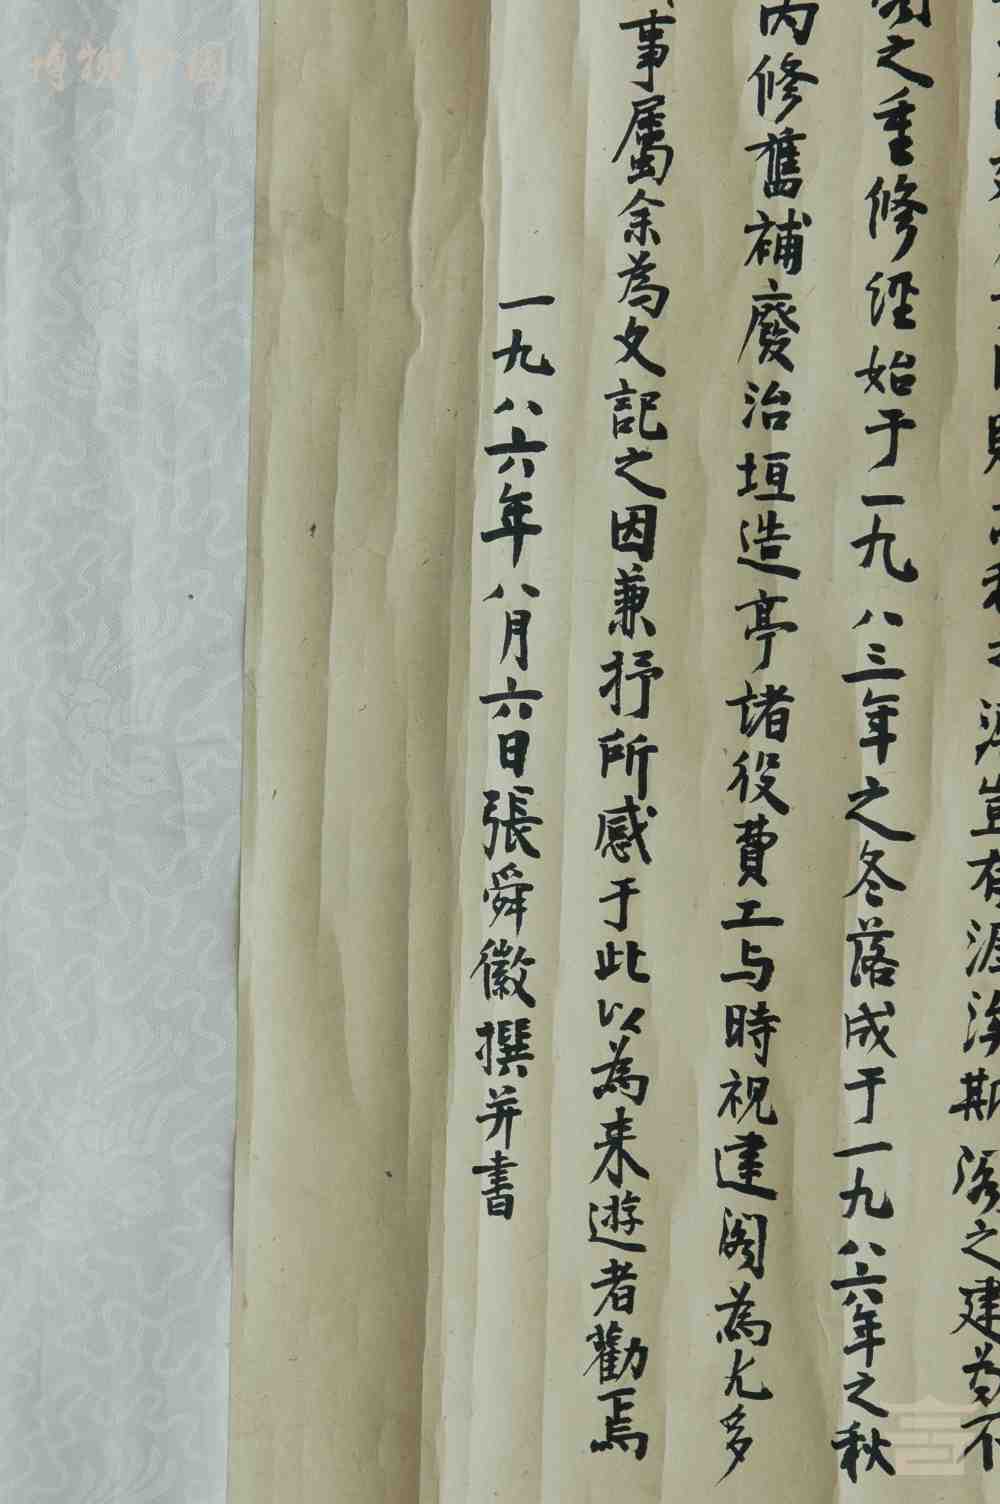 游豈有涯涘斯閣之建為不
之重修經始于一九八三年之冬落成于一九八六年之秋
内修舊補廢治垣造亭諸役費工与時視建閣為尤多
事屬余為文記之因兼抒所感于此以為来遊者勸焉
一九八六年八月六日張舜徽撰并書